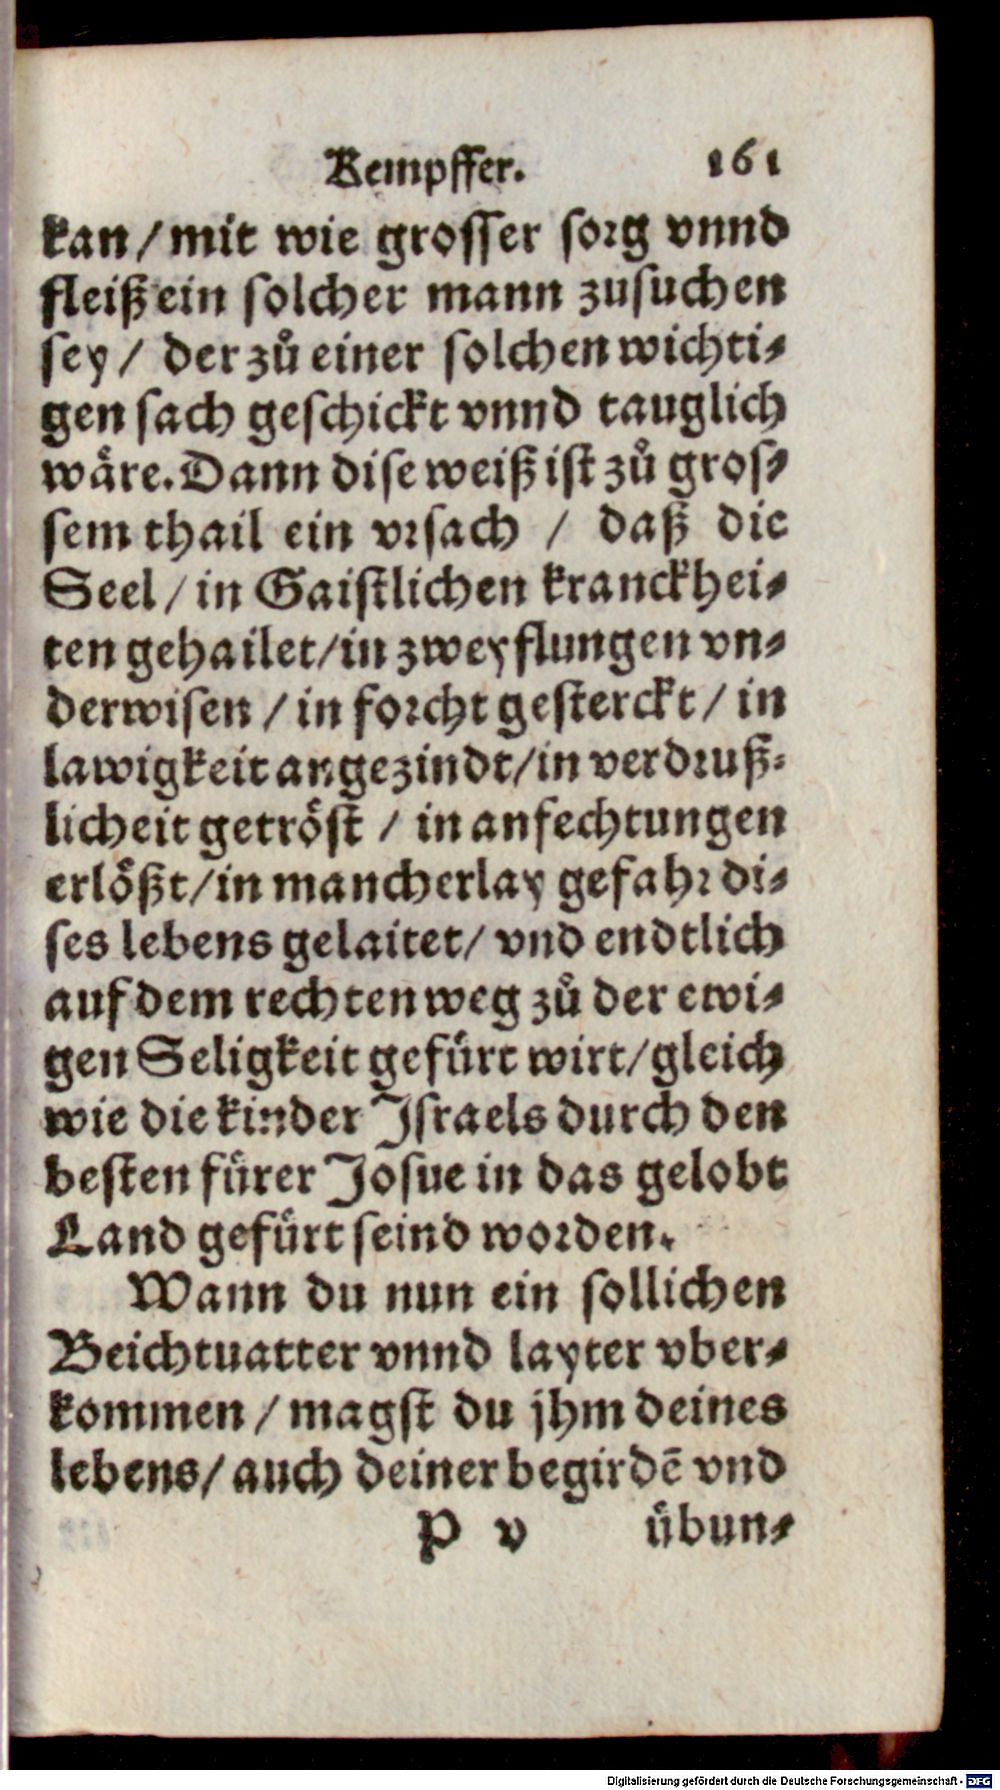 Kempffer. 161
kan / mit wie grosser sorg vnnd
fleiß ein solcher mann zusuchen
sey / der zů einer solchen wichti-
gen sach geschickt vnnd tauglich
wäre. Dann dise weiß ist zů gros-
sem thail ein vrsach / daß die
Seel / in Gaistlichen kranckhei-
ten gehailet / in zweyflungen vn-
derwisen / in forcht gesterckt / in
lawigkeit angezindt / in verdruß-
licheit getröst / in anfechtungen
erlößt / in mancherlay gefahr di-
ses lebens gelaitet / vnd endtlich
auf dem rechten weg zů der ewi-
gen Seligkeit gefürt wirt / gleich
wie die kinder Israels durch den
besten fürer Josue in das gelobt
Land gefürt seind worden.
Wann du nun ein sollichen
Beichtuatter vnnd layter vber-
kommen / magst du jhm deines
lebens / auch deiner begirdē vnd
P v übun-
Digitalisierung gefördert durch die Deutsche Forschungsgemeinschaft - DFG